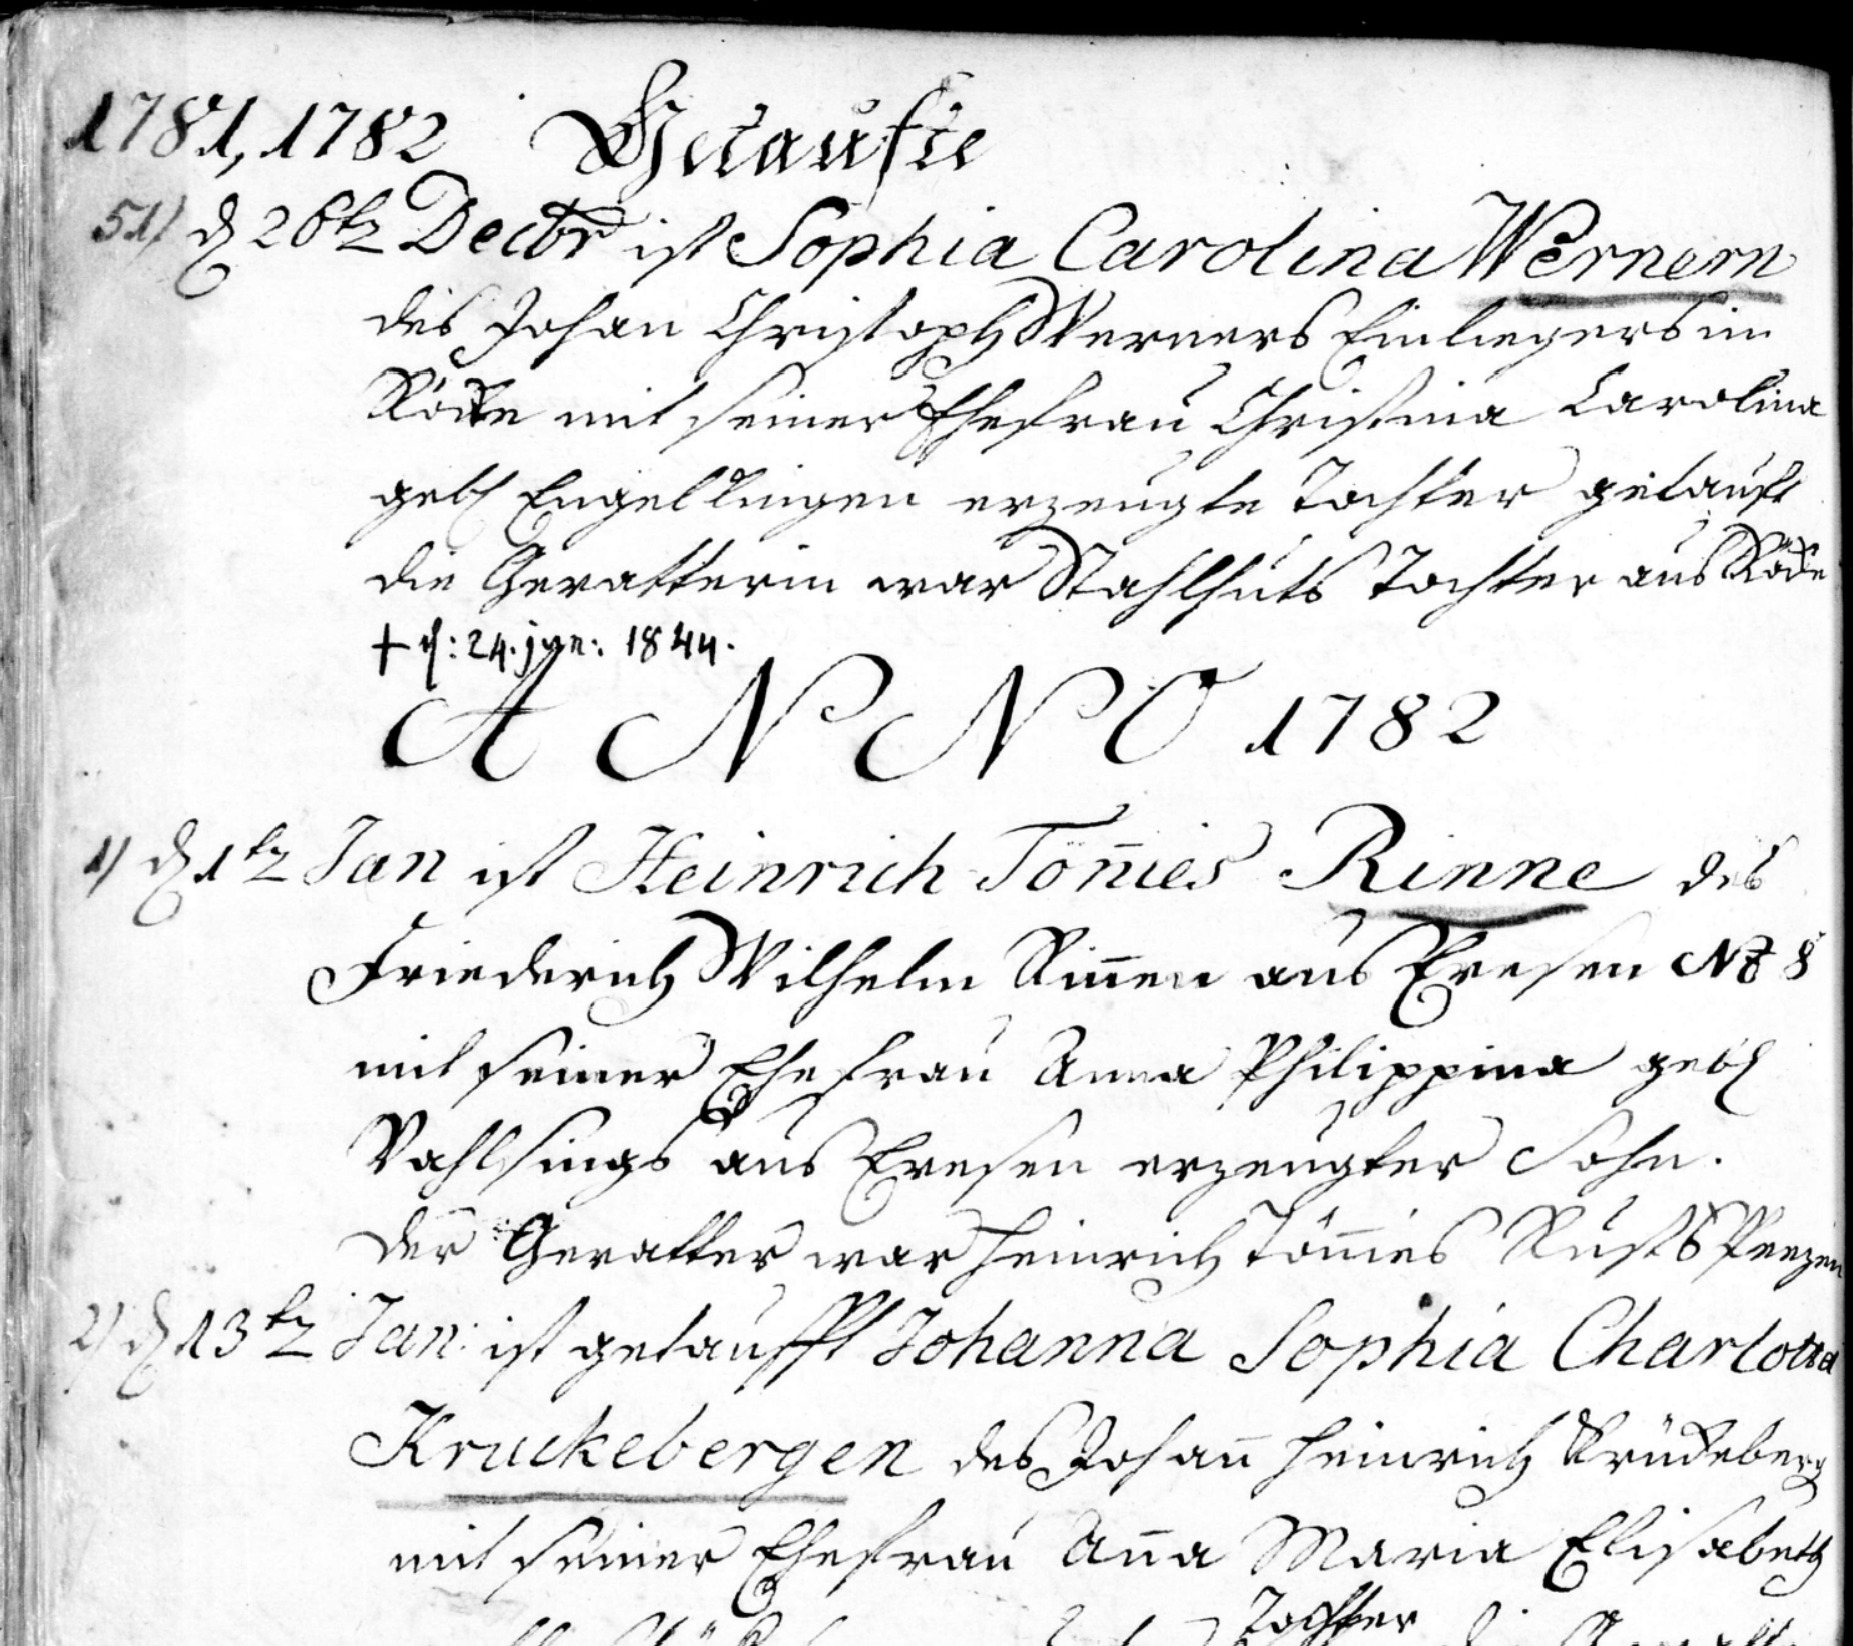 1781, 1782 Getaufte
51) d 26ten Decbr ist Sophia Carolina Wernern
des Johan Christoph Werners Einliegers in
Röcke mit seiner Ehefrau Christina Carolina
geb Engelkingen erzeugte Tochter getauft
die Gevatterin war Stahlhuts Tochter aus Röcke
† d: 24. jan: 1844.
ANNO 1782
1) d 1ten Jan ist Heinrich Tönnies Rinne des
Friederich Wilhelm Rinnen aus Evesen No 8
mit seiner Ehefrau Anna Philippina geb
Vahlsings aus Evesen erzeugter Sohn.
der Gevatter war Heinrich Tönnies Rusts Peezen
2) d 13ten Jan: ist getaufft Johanna Sophia Charlotta
Kruckebergen des Johann Heinrich Krückeberg
mit seiner Ehefrau Anna Maria Elisabeth
Tochter die